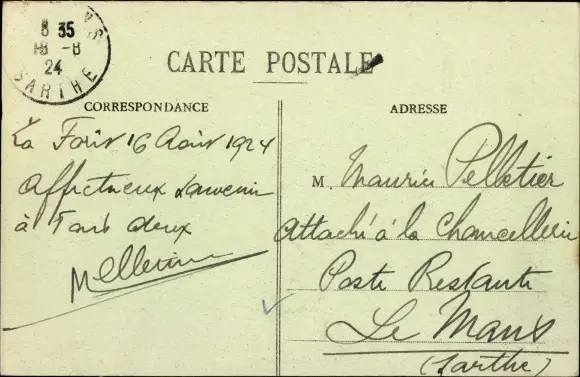 8 35
18 -8
24
SARTHE
CARTE POSTALE
CORRESPONDANCE
ADRESSE
La 16 Août 1924
Affectueux souvenir
à Tous deux
M. Maurice Pelletier
Attaché à la Chancellerie
Poste Restante
Le Mans
(Sarthe)